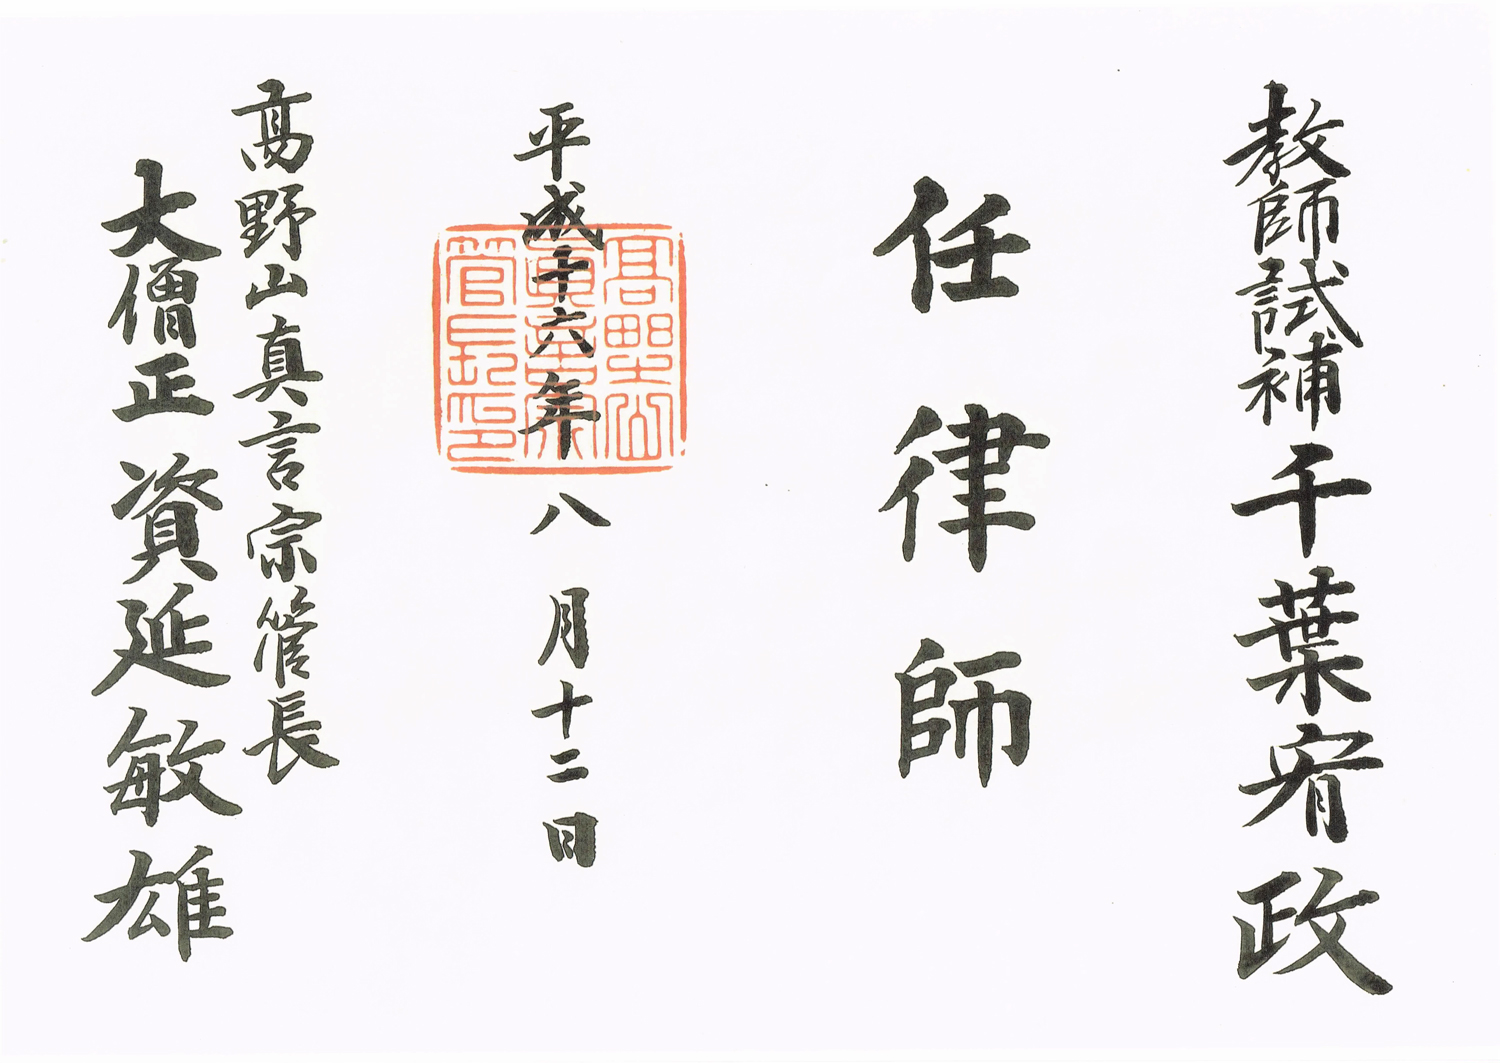 教師試補千葉宥政
任律師
平成十六年八月十二日
高野山真言宗管長
大僧正資延敏雄
高野山
真言宗
管長印